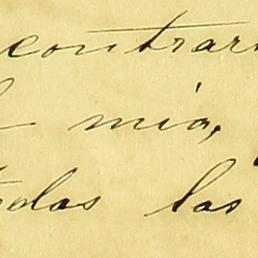 contrar
mia,
todas las